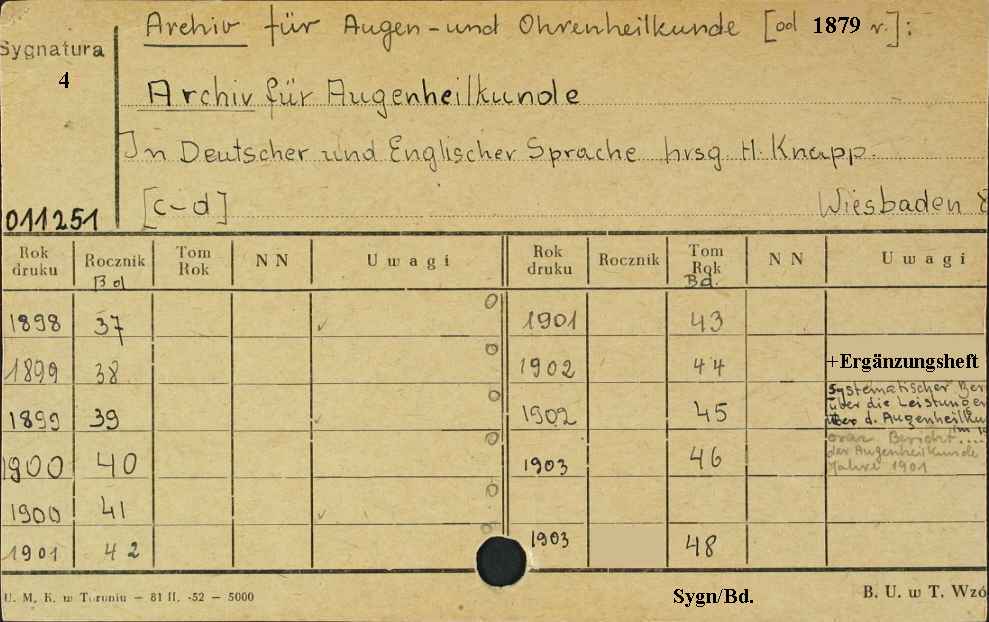 Archiv für Augen-und Ohrenheilkunde [od 1879 r.]:
Sygnatura
4
Archiv für Augenheilkunde
In Deutscher und Englischer Sprache hrsg H. Knapp.
[c-d] Wiesbaden
011251
Rok druku Rocznik Bd Tom Rok NN Uwagi Rok druku Rocznik Tom Rok Bd. NN Uwagi
1898 37 1901 43
1899 38 1902 44 +Ergänzungsheft
1899 39 1902 45 Systematischer Ber
über die Leistunge
über d. Augenheilku
im
1900 40 1903 46 oraz Bericht....
der Augenheilkunde
Jahre 1901
1900 41
1901 42 1903 48
U. M. K. w Toruniu — 81 II. -52 — 5000 Sygn/Bd. B. U. w T. Wzó